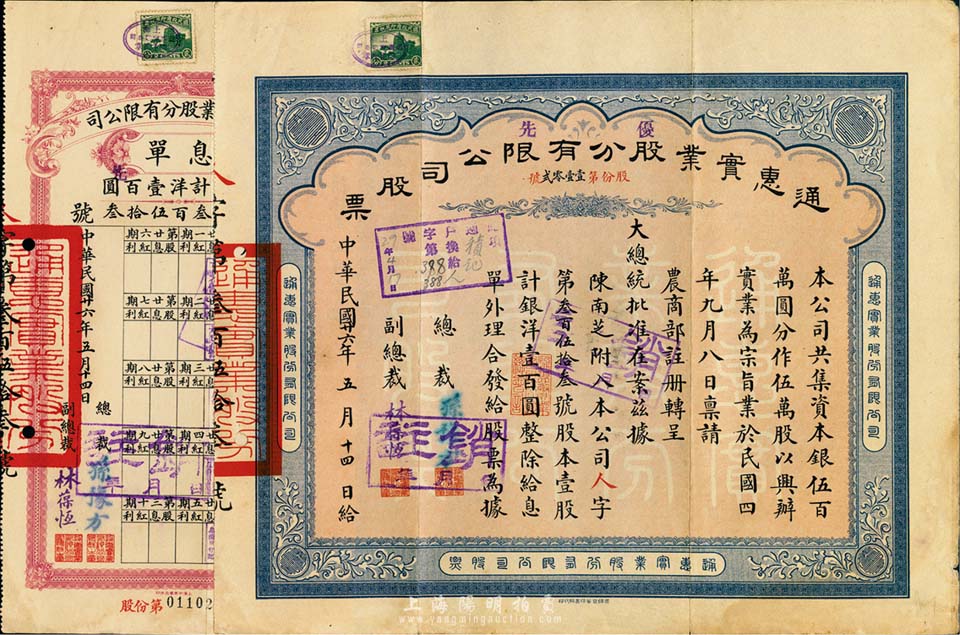 優先
通惠實業股分有限公司股票
股份第壹壹零貳號
本公司共集資本銀伍百
萬圓分作伍萬股以興辦
實業為宗旨業於民國四
年九月八日稟請
農商部註册轉呈
大總統批准在案茲據
陳南芝附入本公司人字
第叁百伍拾叁號股本壹股
計銀洋壹百圓整除給息
單外理合發給股票為據
總裁
副總裁 林葆恒
中華民國十六年五月十四日給
註銷
年月
通惠實業股分有限公司股票
通惠實業股分有限公司
通惠實業股分有限公司
業股分有限公司
息單
先
計洋壹百圓
叁百伍拾叁號
第廿六期
股息紅利
第廿七期
股息紅利
第廿八期
股息紅利
第廿九期
股息紅利
第三十期
股息紅利
中華民國十六年五月十四日
總裁 孫多方
副總裁 林葆恒
人字第叁百伍拾叁號
股份第01102
上海陽明拍賣
www.yangmingauction.com